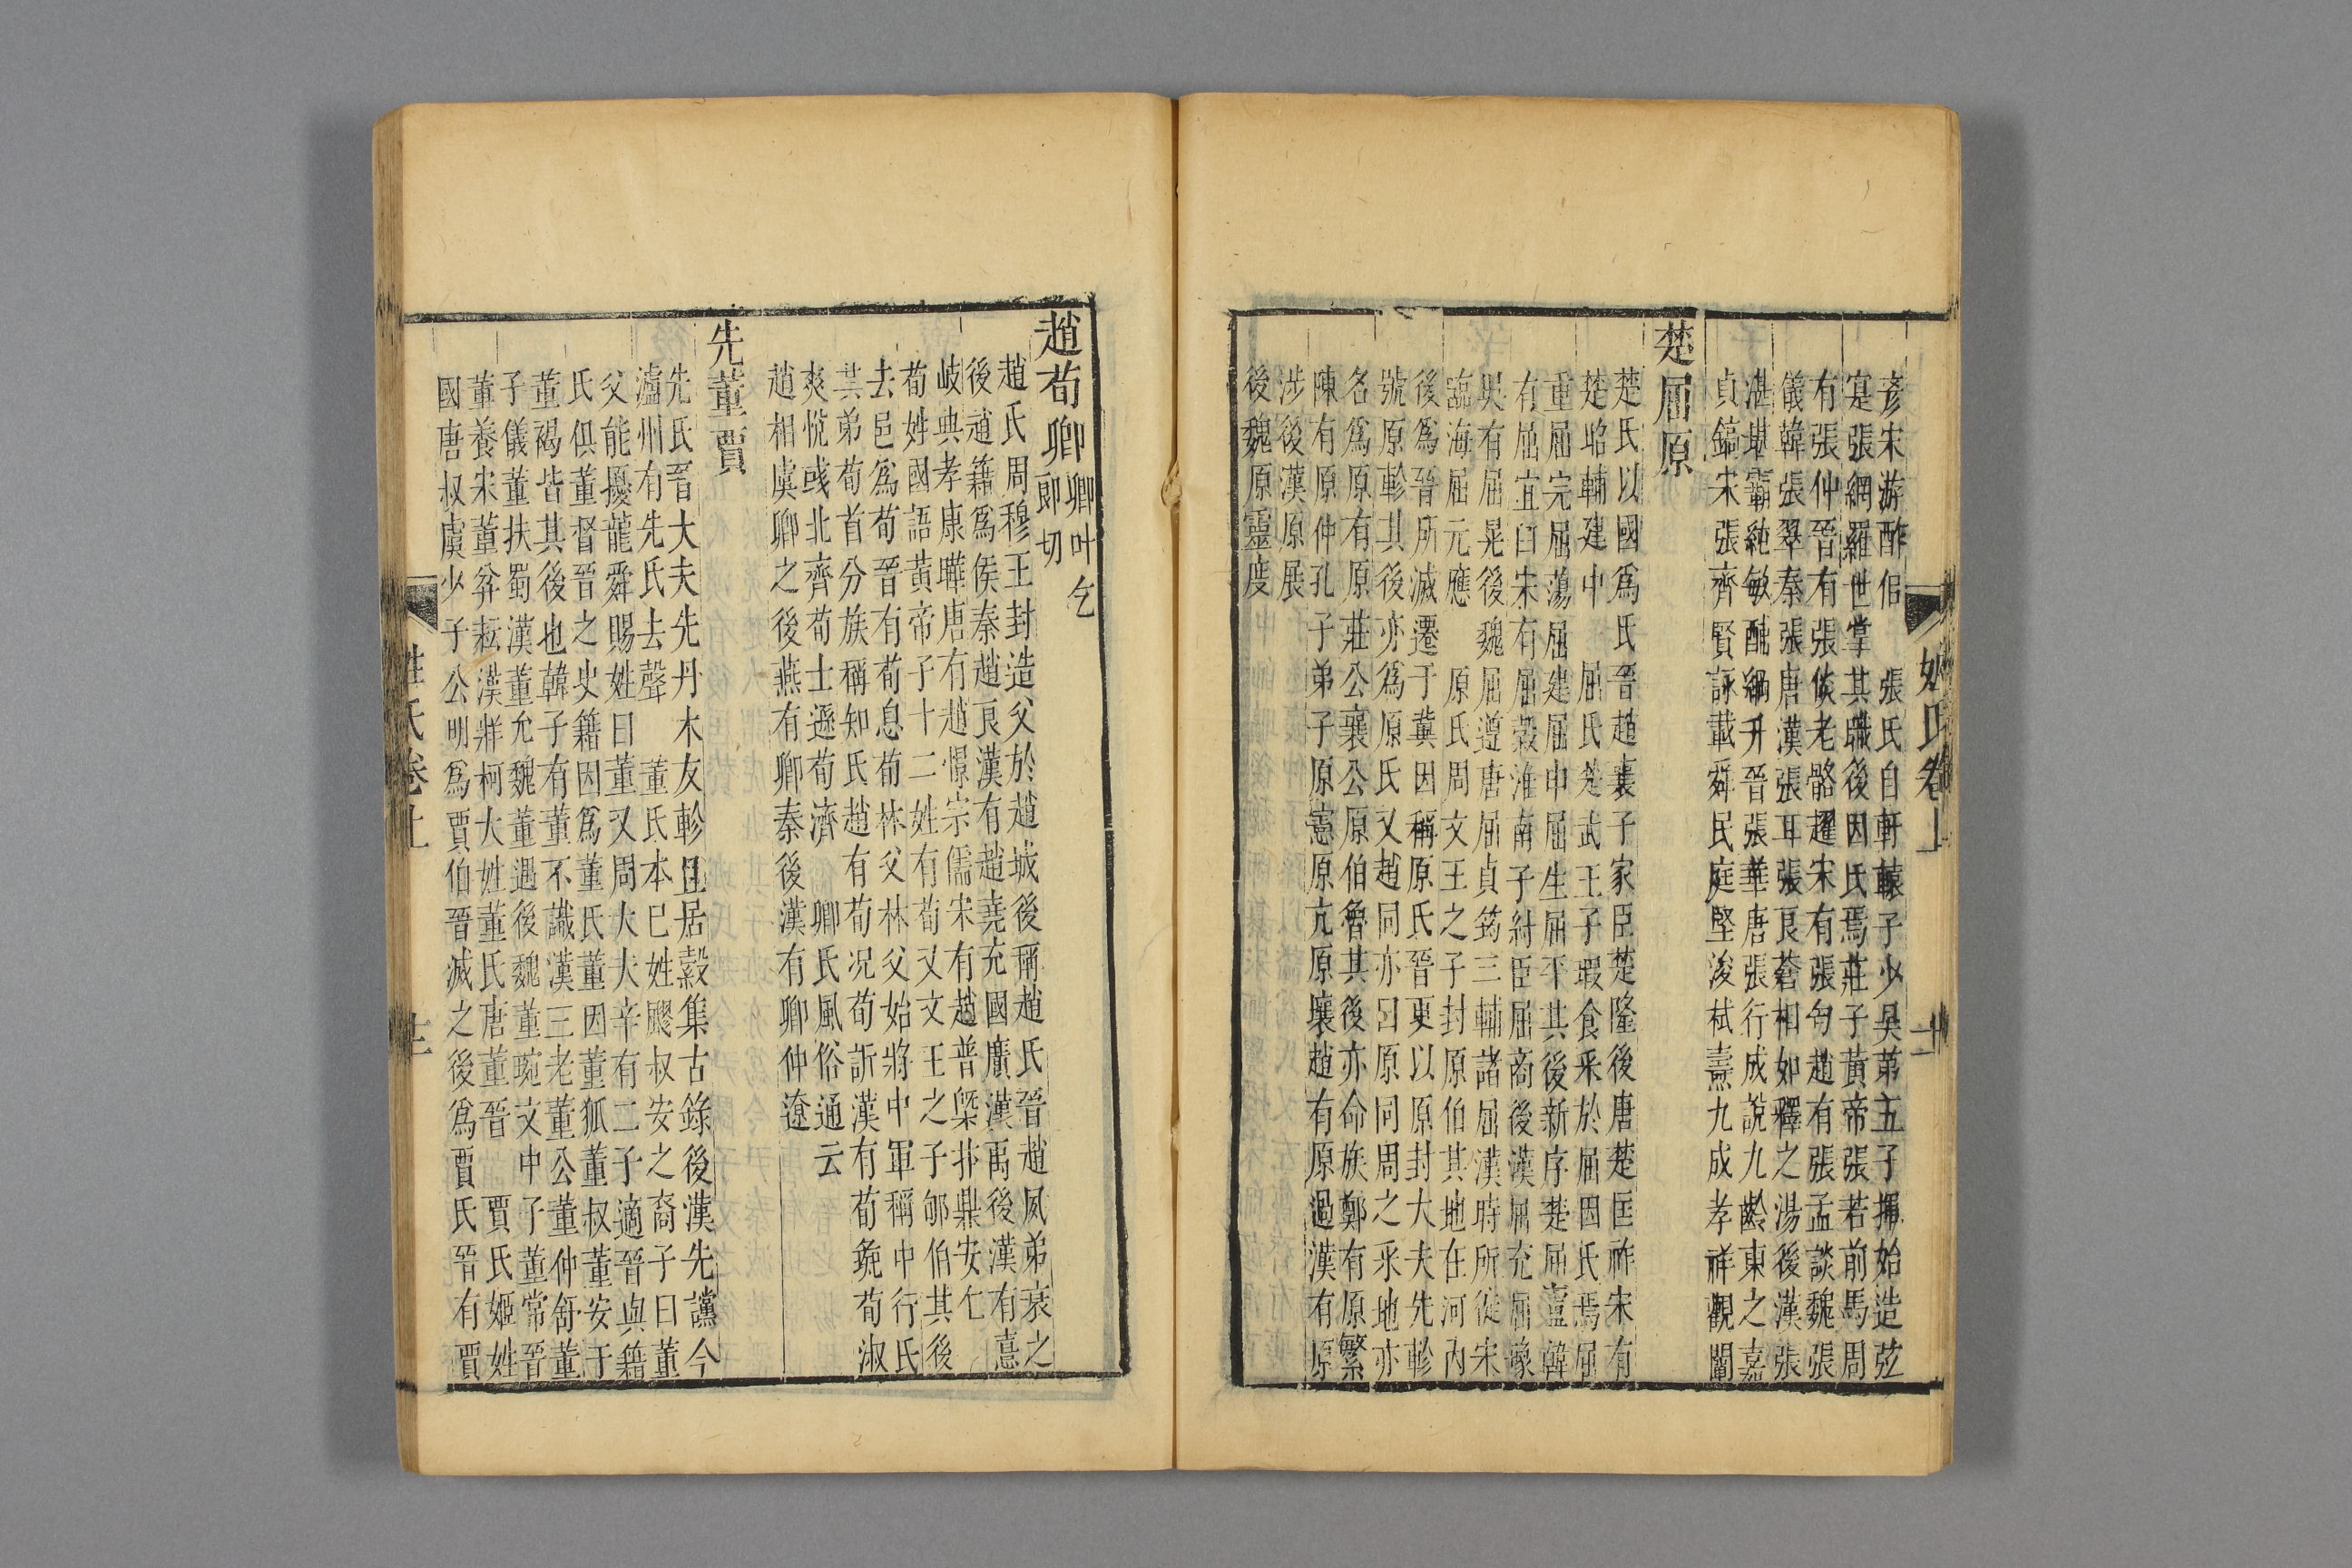 彦宋游酢倌　張氏自軒轅子少昊弟五子揮始造弦
寔張網羅世掌其職後因氏焉莊子黃帝張若前馬周
有張仲晉有張侯老骼趯宋有張匄趙有張孟談魏張
儀韓張翠秦張唐漢張耳張良蒼相如釋之湯後漢張
湛堪霸純敏酺綱升晉張華唐張行成說九齡東之嘉
貞鎬宋張齊賢詠載舜民庭堅浚栻燾九成孝祥觀闡
楚屈原
楚氏以國爲氏晉趙襄子家臣楚隆後唐楚匡祚宋有
楚昭輔建中　屈氏楚武王子瑕食采於屈因氏焉屈
重屈完屈蕩屈建屈申屈生屈平其後新序楚屈廬韓
有屈宜臼宋有屈穀淮南子紂臣屈商後漢屈充屈豫
吳有屈晃後魏屈遵唐屈貞筠三輔諸屈漢時所從宋
臨海屈元應　原氏周文王之子封原伯其地在河內
後爲晉所滅遷于冀因稱原氏晉更以原封大夫先軫
號原軫其後亦爲原氏又趙同亦曰原同周之采地亦
名爲原有原莊公襄公原伯魯其後亦命族鄭有原繁
陳有原仲孔子弟子原憲原亢原壤趙有原過漢有原
涉後漢原展
後魏原靈度
姓氏卷上　十一
趙荀卿卿叶乞
卽切
趙氏周穆王封造父於趙城後稱趙氏晉趙夙弟衰之
後趙籍爲侯秦趙良漢有趙堯充國廣漢禹後漢有憙
岐典孝康曄唐有趙憬宗儒宋有趙普㮣抃鼎安仁
荀姓國語黃帝子十二姓有荀又文王之子郇伯其後
去邑爲荀晉有荀息荀林父林父始將中軍稱中行氏
其弟荀首分族稱知氏趙有荀况荀訢漢有荀彘荀淑
爽悅彧北齊荀士遜荀濟　卿氏風俗通云
趙相虞卿之後燕有卿秦後漢有卿仲遼
先董賈
先氏晉大夫先丹木友軫且居縠集古錄後漢先讜今
瀘州有先氏去聲　董氏本己姓飂叔安之裔子曰董
父能擾龍舜賜姓曰董又周大夫辛有二子適晉與籍
氏俱董督晉之史籍因爲董氏董因董狐董叔董安于
董褐皆其後也韓子有董不識漢三老董公董仲舒董
子儀董扶蜀漢董允魏董遇後魏董琬文中子董常晉
董養宋董弅耘漢牂柯大姓董氏唐董晉　賈氏姬姓
國唐叔虞少子公明爲賈伯晉滅之後爲賈氏晉有賈
姓氏卷上　十二